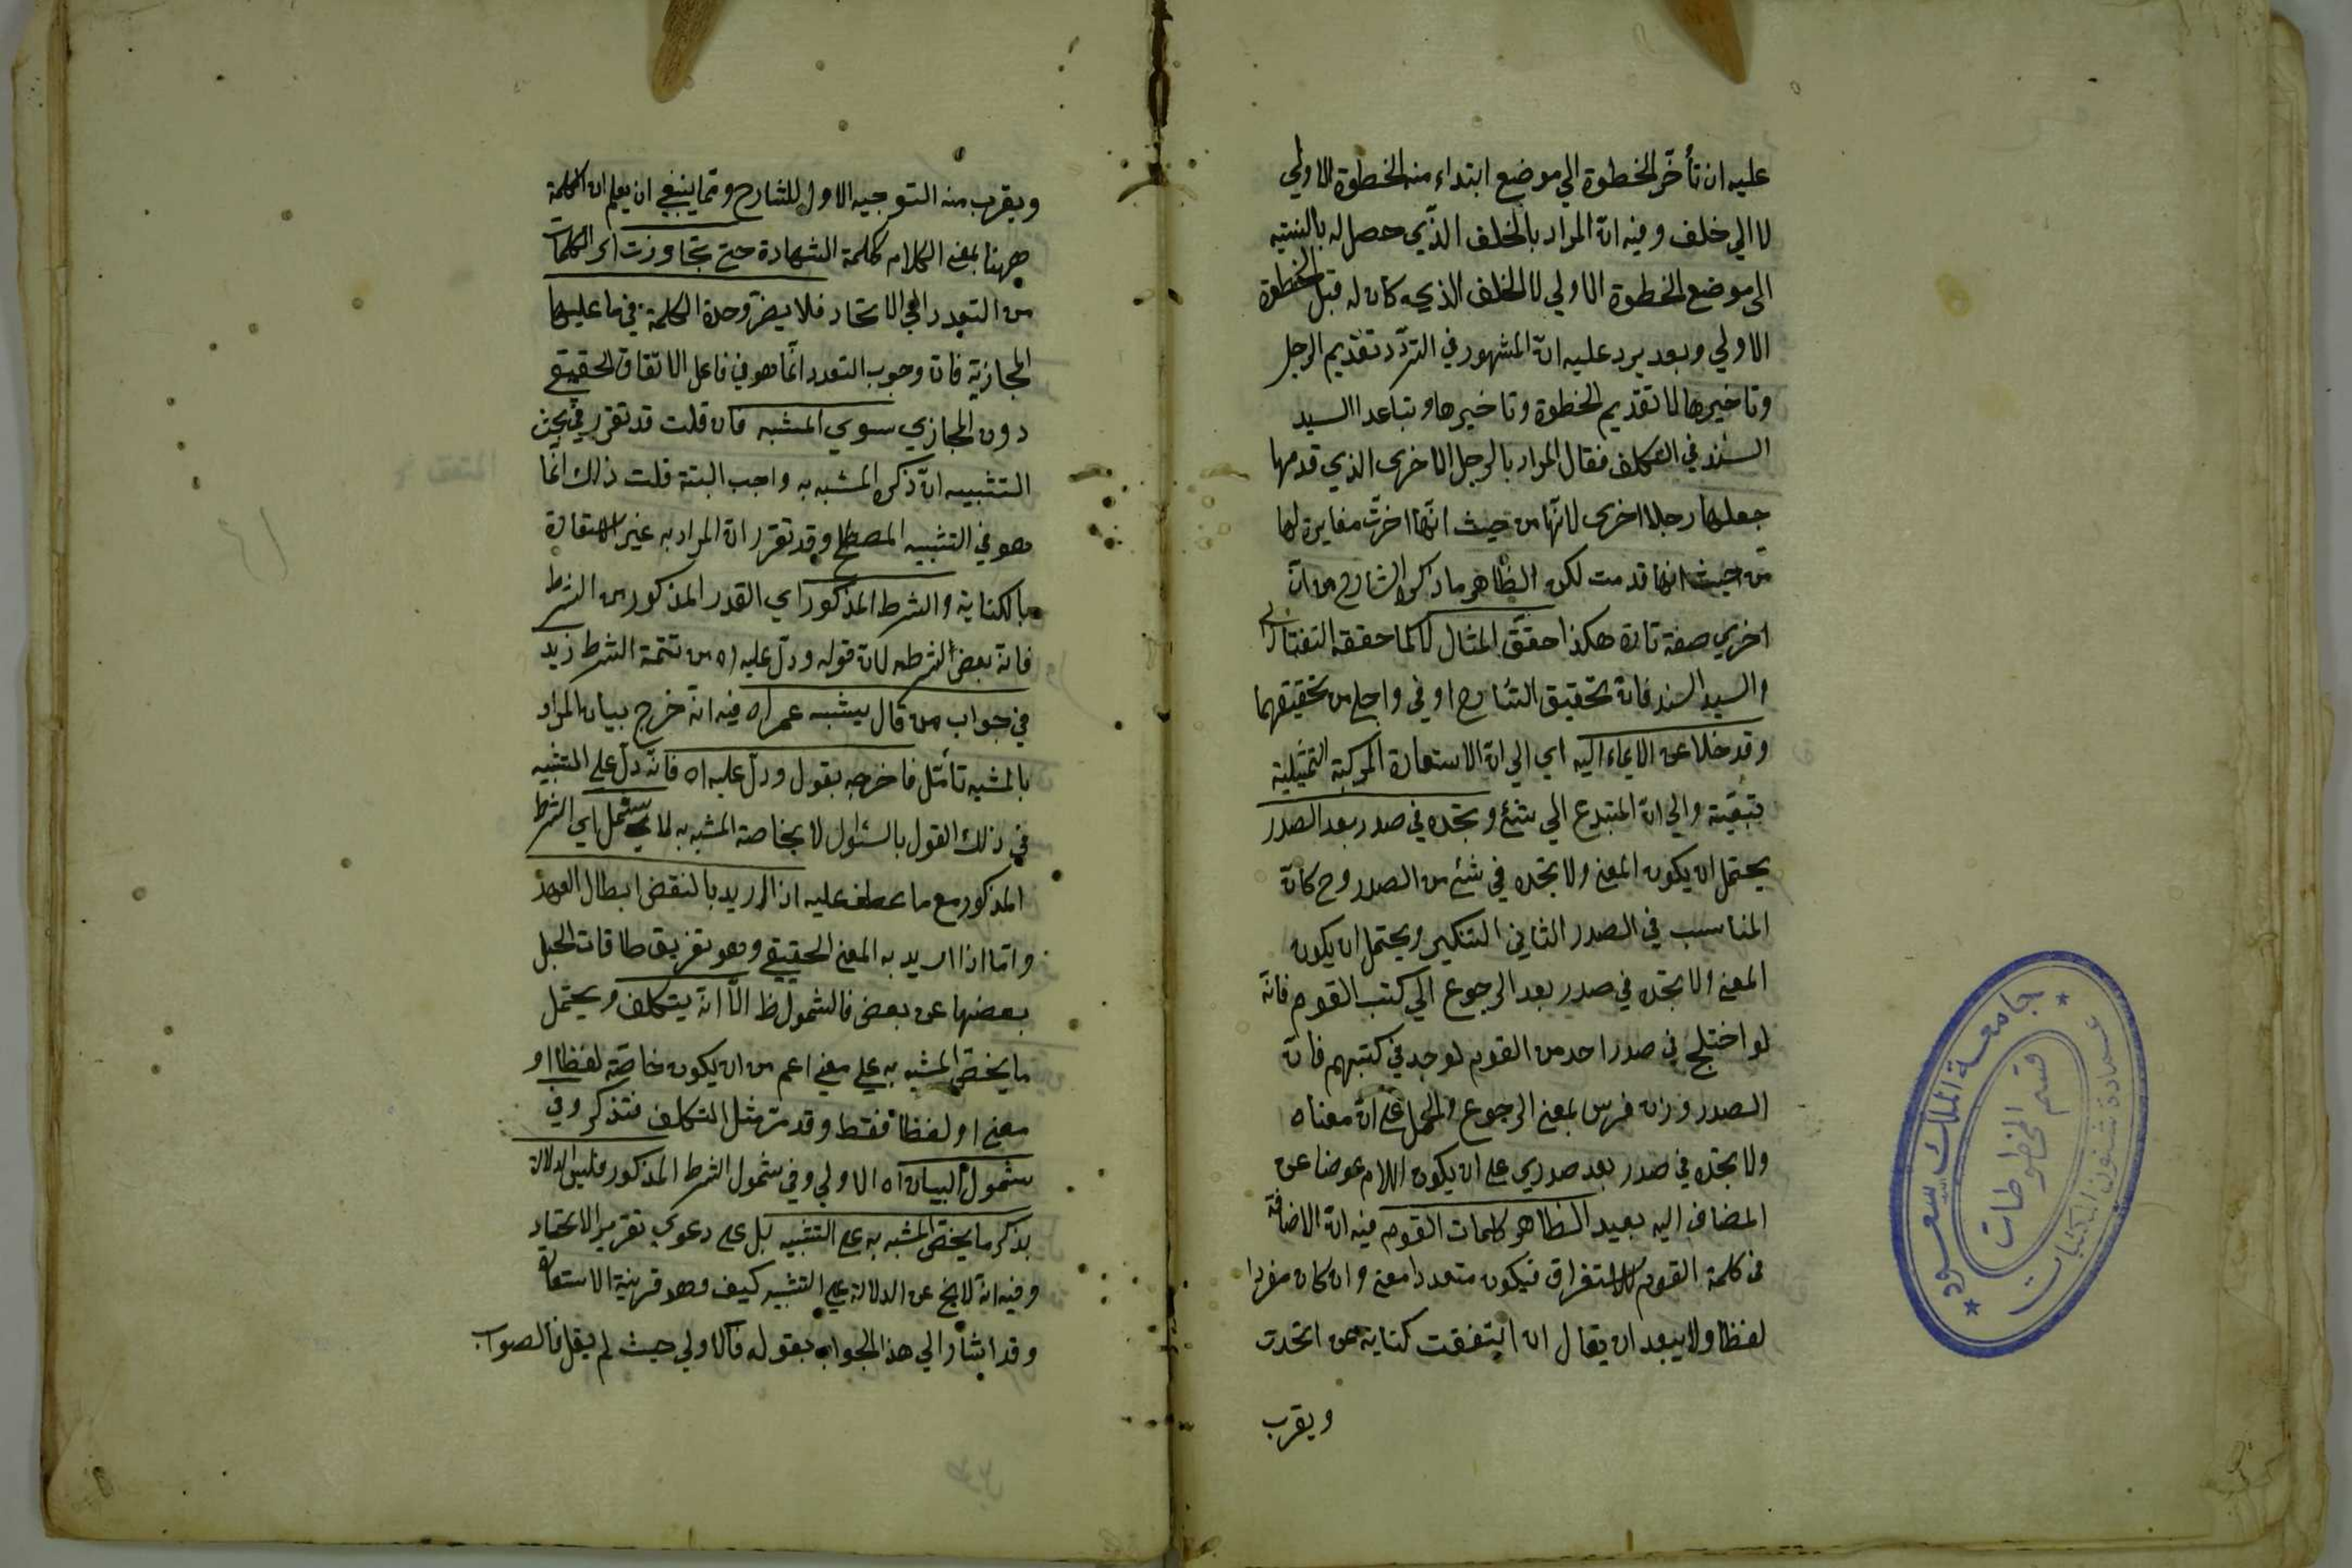 عليه ان تأخّر الخطوة الي موضع ابتداء منه الخطوة الاولي
لا الي خلف وفيه انّ المراد بالخلف الذي حصل له بالنسبة
الى موضع الخطوة الاولي لا الخلف الذي كان له قبل الخطوة
الاولي وبعد يرد عليه انّ المشهور في التردّد تقديم الرجل
وتاخيرها لا تقديم الخطوة وتاخيرها وتباعد السيد
السند في التكلف فقال المراد بالرجل الاخرى الذي قدمها
جعلها رجلا اخرى لانّها من حيث انّها اخرّت مغايرة لها
من حيث انها قدمت لكن الظاهر ما ذكره الشارح من انّ
اخري صفة تارة هكذا حقّق المثال لا كما حققه التفتازاني
والسيد السند فانّ تحقيق الشارح اوفي واجلي من تحقيقهما
وقد خلا عن الايماء اليه اي الي انّ الاستعارة المركبة التمثيلية
تبعيّة والي انّ المبتدع الي شئ وتجده في صدر بعد الصدر
يحتمل ان يكون المعنى ولا تجده في شئ من الصدر وح كان
المناسب في الصدر الثاني التنكير ويحتمل ان يكون
المعنى ولا تجده في صدر بعد الرجوع الي كتب القوم فانّه
لو اختلج في صدر احد من القوم لوجد في كتبهم فانّ
الصدر وزان فرس بمعنى الرجوع والحمل على انّ معناه
ولا تجده في صدر بعد صدري على ان يكون اللام عوضا عن
المضاف اليه بعيد الظاهر كلمات القوم فيه انّ الاضافة
في كلمة القوم للاستغراق فيكون متعددا معنى وان كان مفردا
لفظا ولا يبعد ان يقال ان اتفقت كناية عن اتحدت
ويقرب
ويقرب منه التوجيه الاول للشارح وممّا ينبغي ان يعلم ان الكلمة
ههنا بمعنى الكلام ككلمة الشهادة حتى تجاوزت اي الكلمات
من التعدد الي الاتحاد فلا يضرّ وحدة الكلمة في ما عليها
المجازية فان وجوب التعدد انّما هو في فاعل الاتّفاق الحقيقي
دون المجازي سوي المشبه فان قلت قد تقرر في بحث
التشبيه انّ ذكر المشبه به واجب البتة قلت ذلك انّما
هو في التشبيه المصطلح وقد تقرر انّ المراد به غير الاستعارة
بالكناية والشرط المذكور اي القدر المذكور من الشرط
فانّه بعض الشرط لان قوله ودلّ عليه اه من تتمة الشرط زيد
في جواب من قال يشبه عمرا اه فيه انّه خرج بيان المراد
بالمشبه تأمّل فاخرجه بقول ودلّ عليه اه فانّه دلّ على التشبيه
في ذلك القول بالسئوال لا بخاصة المشبه به لما يشمل اي الشرط
المذكور مع ما عطف عليه اذا اريد بالنقض ابطال العهد
وامّا اذا اريد به المعنى الحقيقي وهو تفريق طاقات الحبل
بعضها عن بعض فالشمول ظ الّا انّه يتكلف ويحتمل
ما يخصّ المشبه به على معنى اعم من ان يكون خاصّة لفظا او
معنى او لفظا فقط وقد مرّ مثل التكلف فتذكر وفي
شمول البيان اه الاولي وفي شمول الشرط المذكور فليس الدلالة
بذكر ما يخصّ المشبه به على التشبيه بل على دعوي تقرير الاتحاد
وفيه انّه لا يخ عن الدلالة علي التشبيه كيف وهو قرينة الاستعارة
وقد اشار الي هذا الجواب بقوله فالاولي حيث لم يقل فالصواب
جامعة الملك سعود
عمادة شئون المكتبات
قسم المخطوطات